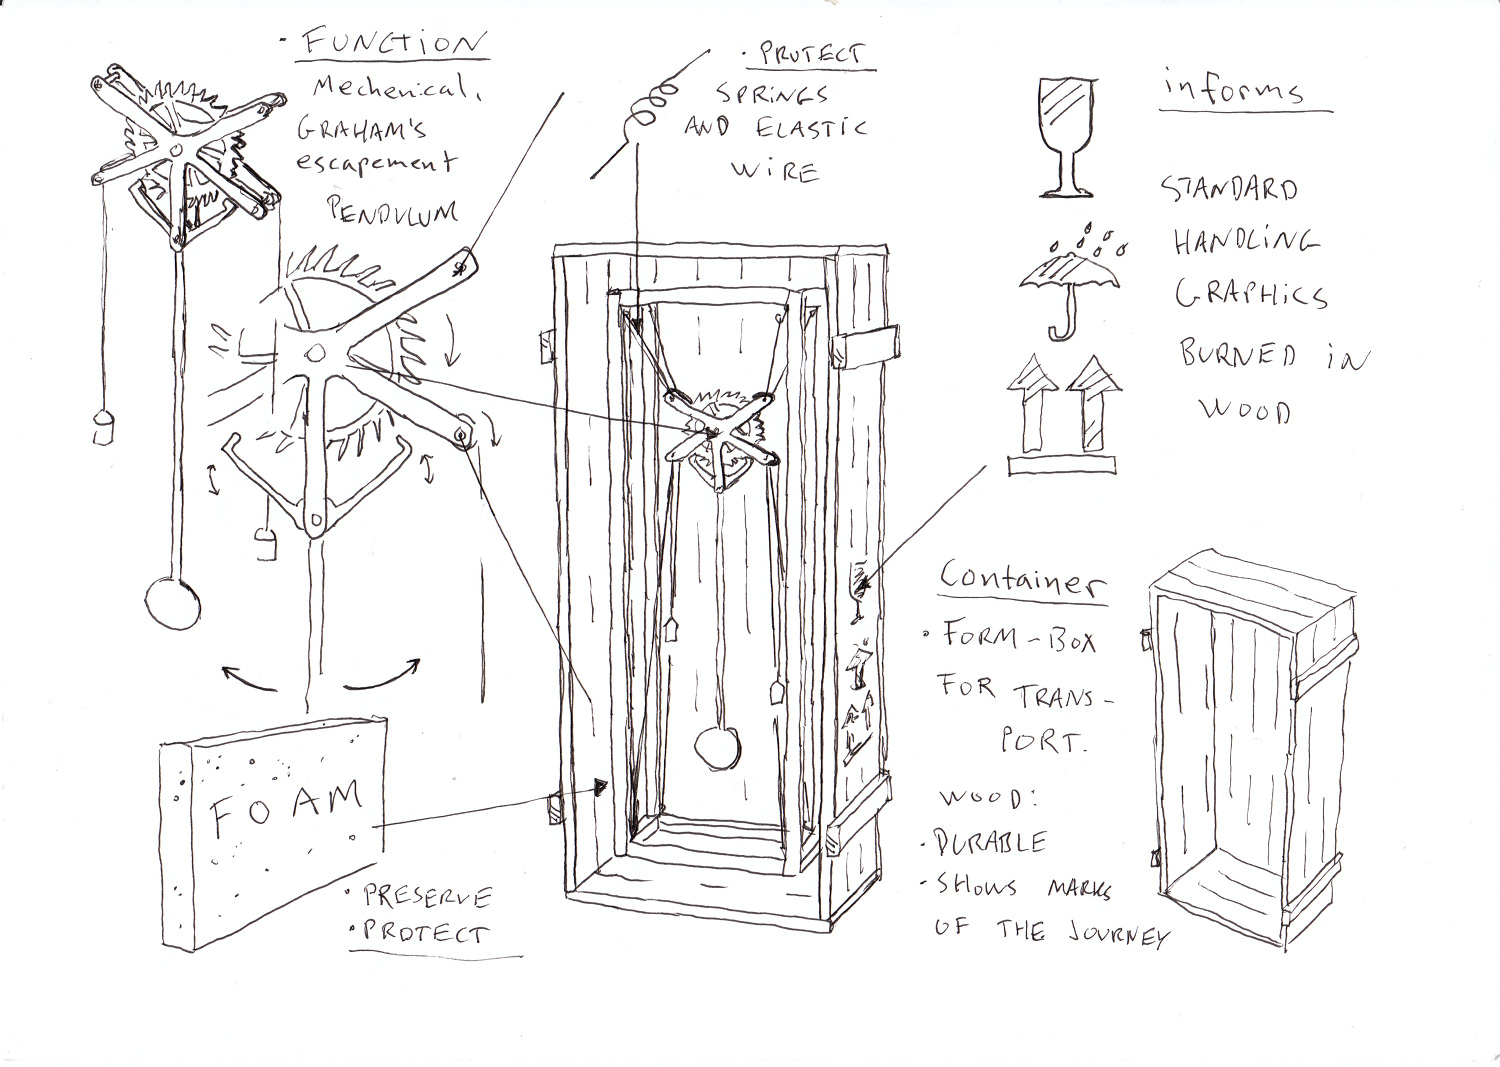 · FUNCTION
Mechenical,
GRAHAM'S
escapement
PENDULUM
· PROTECT
SPRINGS
AND ELASTIC
WIRE
informs
STANDARD
HANDLING
GRAPHICS
BURNED IN
WOOD
Container
· FORM-BOX
FOR TRANS-
PORT.
WOOD:
· DURABLE
· SHOWS MARKS
OF THE JOURNEY
FOAM
· PRESERVE
· PROTECT